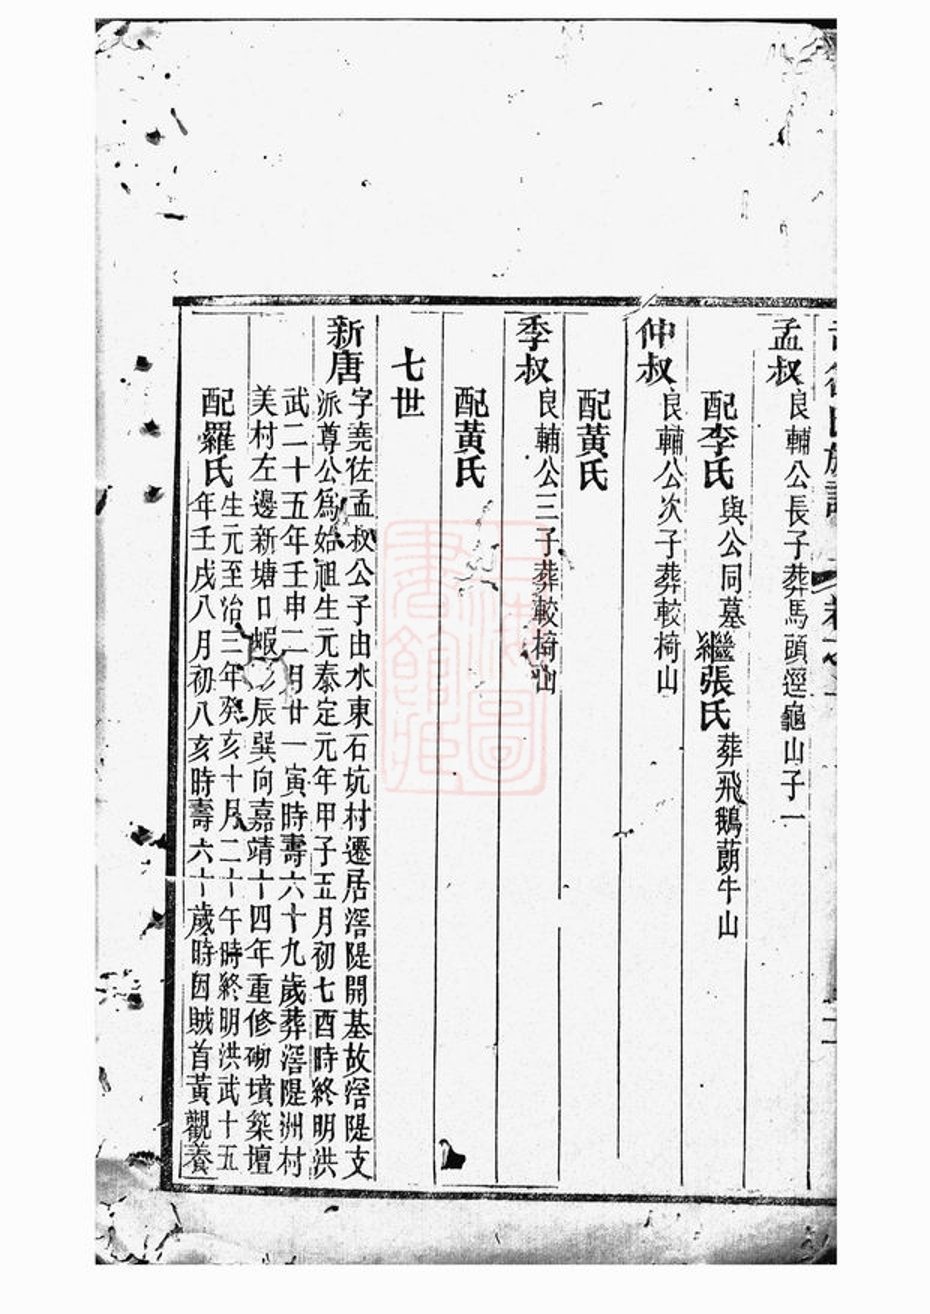 孟叔 良輔公長子葬馬頭逕龜山子一
配李氏 與公同墓 繼張氏 葬飛鵝蓢牛山
仲叔 良輔公次子葬較椅山
配黃氏
季叔 良輔公三子葬較椅山
配黃氏
七世
新唐 字堯佐孟叔公子由水東石坑村遷居滘隄開基故滘隄支
派尊公爲始祖生元泰定元年甲子五月初七酉時終明洪
武二十五年壬申二月廿一寅時壽六十九歲葬滘隄洲村
美村左邊新塘口蝦辰巽向嘉靖十四年重修砌墳築壇
配羅氏 生元至治三年癸亥十月二十午時終明洪武十五
年壬戌八月初八亥時壽六十歲時因賊首黃觀養